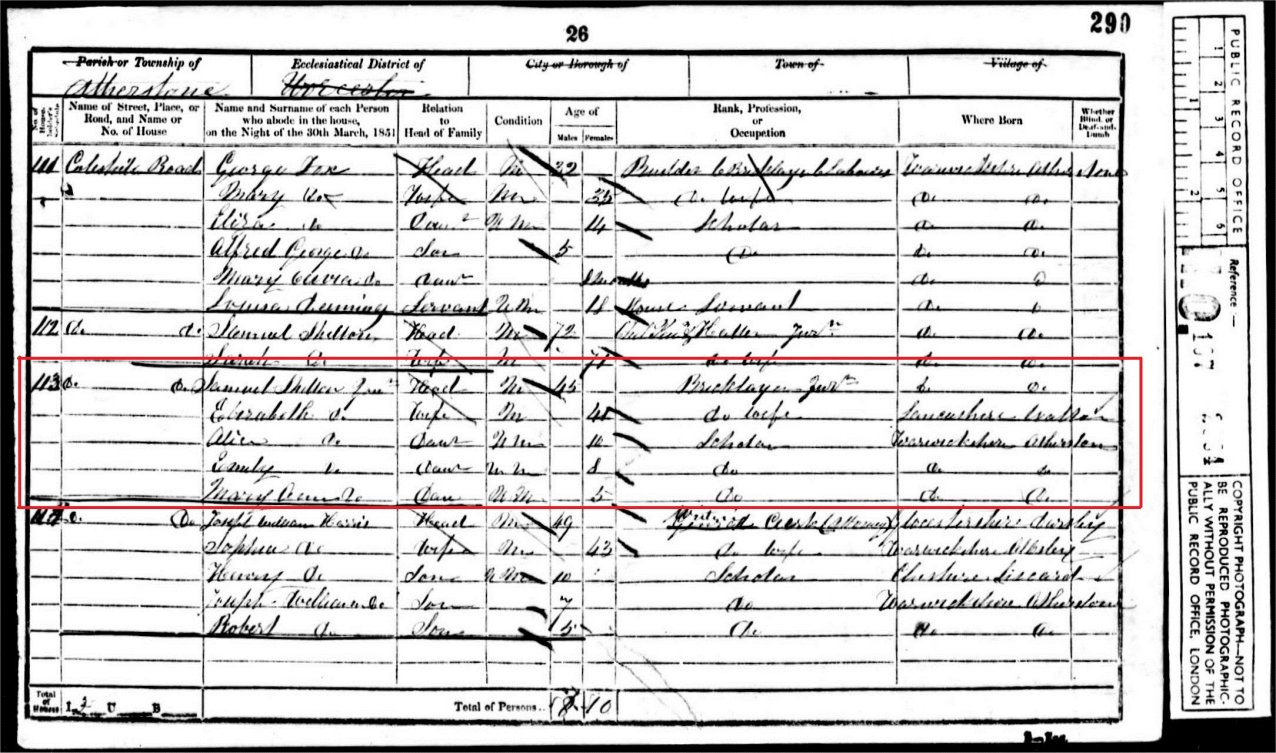 26
290
Parish or Township of Ecclesiastical District of City or Borough of Town of Village of
Atherstone
Name of Street, Place, or Road, and Name or No. of House
Name and Surname of each Person who abode in the house, on the Night of the 30th March, 1851
Relation to Head of Family
Condition
Age of
Males Females
Rank, Profession, or Occupation
Where Born
Whether Blind, or Deaf-and-Dumb
111 Coleshill Road George Fox Head M 32 Builder Bricklayer Labourer Warwickshire None
Mary Do Wife M 35 Do Wife Do Do
Eliza Do Daur U M 14 Scholar Do Do
Alfred George Do Son 5 Do Do Do
Mary Do Daur 8 Do Do
Louisa Denning Servant U M 18 House Servant Do Do
112 Do Do Samuel Shilton Head M 72 Hatter Jurn Do Do
Sarah Do Wife M 71 Do Wife Do Do
113 Do Do Samuel Shilton Junr Head M 45 Bricklayer Jurn Do Do
Elizabeth Do Wife M 41 Do Wife Lancashire Walton
Alice Do Daur U M 10 Scholar Warwickshire Atherston
Emily Do Daur U M 8 Do Do Do
Mary Ann Do Dau U M 5 Do Do Do
Do Do Joseph William Harris Head M 49 Clerk (Attorney) Gloucestershire Dursley
Sophia Do Wife M 43 Do Wife Warwickshire
Henry Do Son U M 10 Scholar Cheshire Liscard
Joseph William Do Son 7 Do Warwickshire Atherstone
Robert Do Son 5 Do Do Do
Total of Houses I U B Total of Persons.. 8 10
PUBLIC RECORD OFFICE
1 2 3 4 5 6
1 2
Reference :-
107
COPYRIGHT PHOTOGRAPH—NOT TO
BE REPRODUCED PHOTOGRAPHIC-
ALLY WITHOUT PERMISSION OF THE
PUBLIC RECORD OFFICE, LONDON